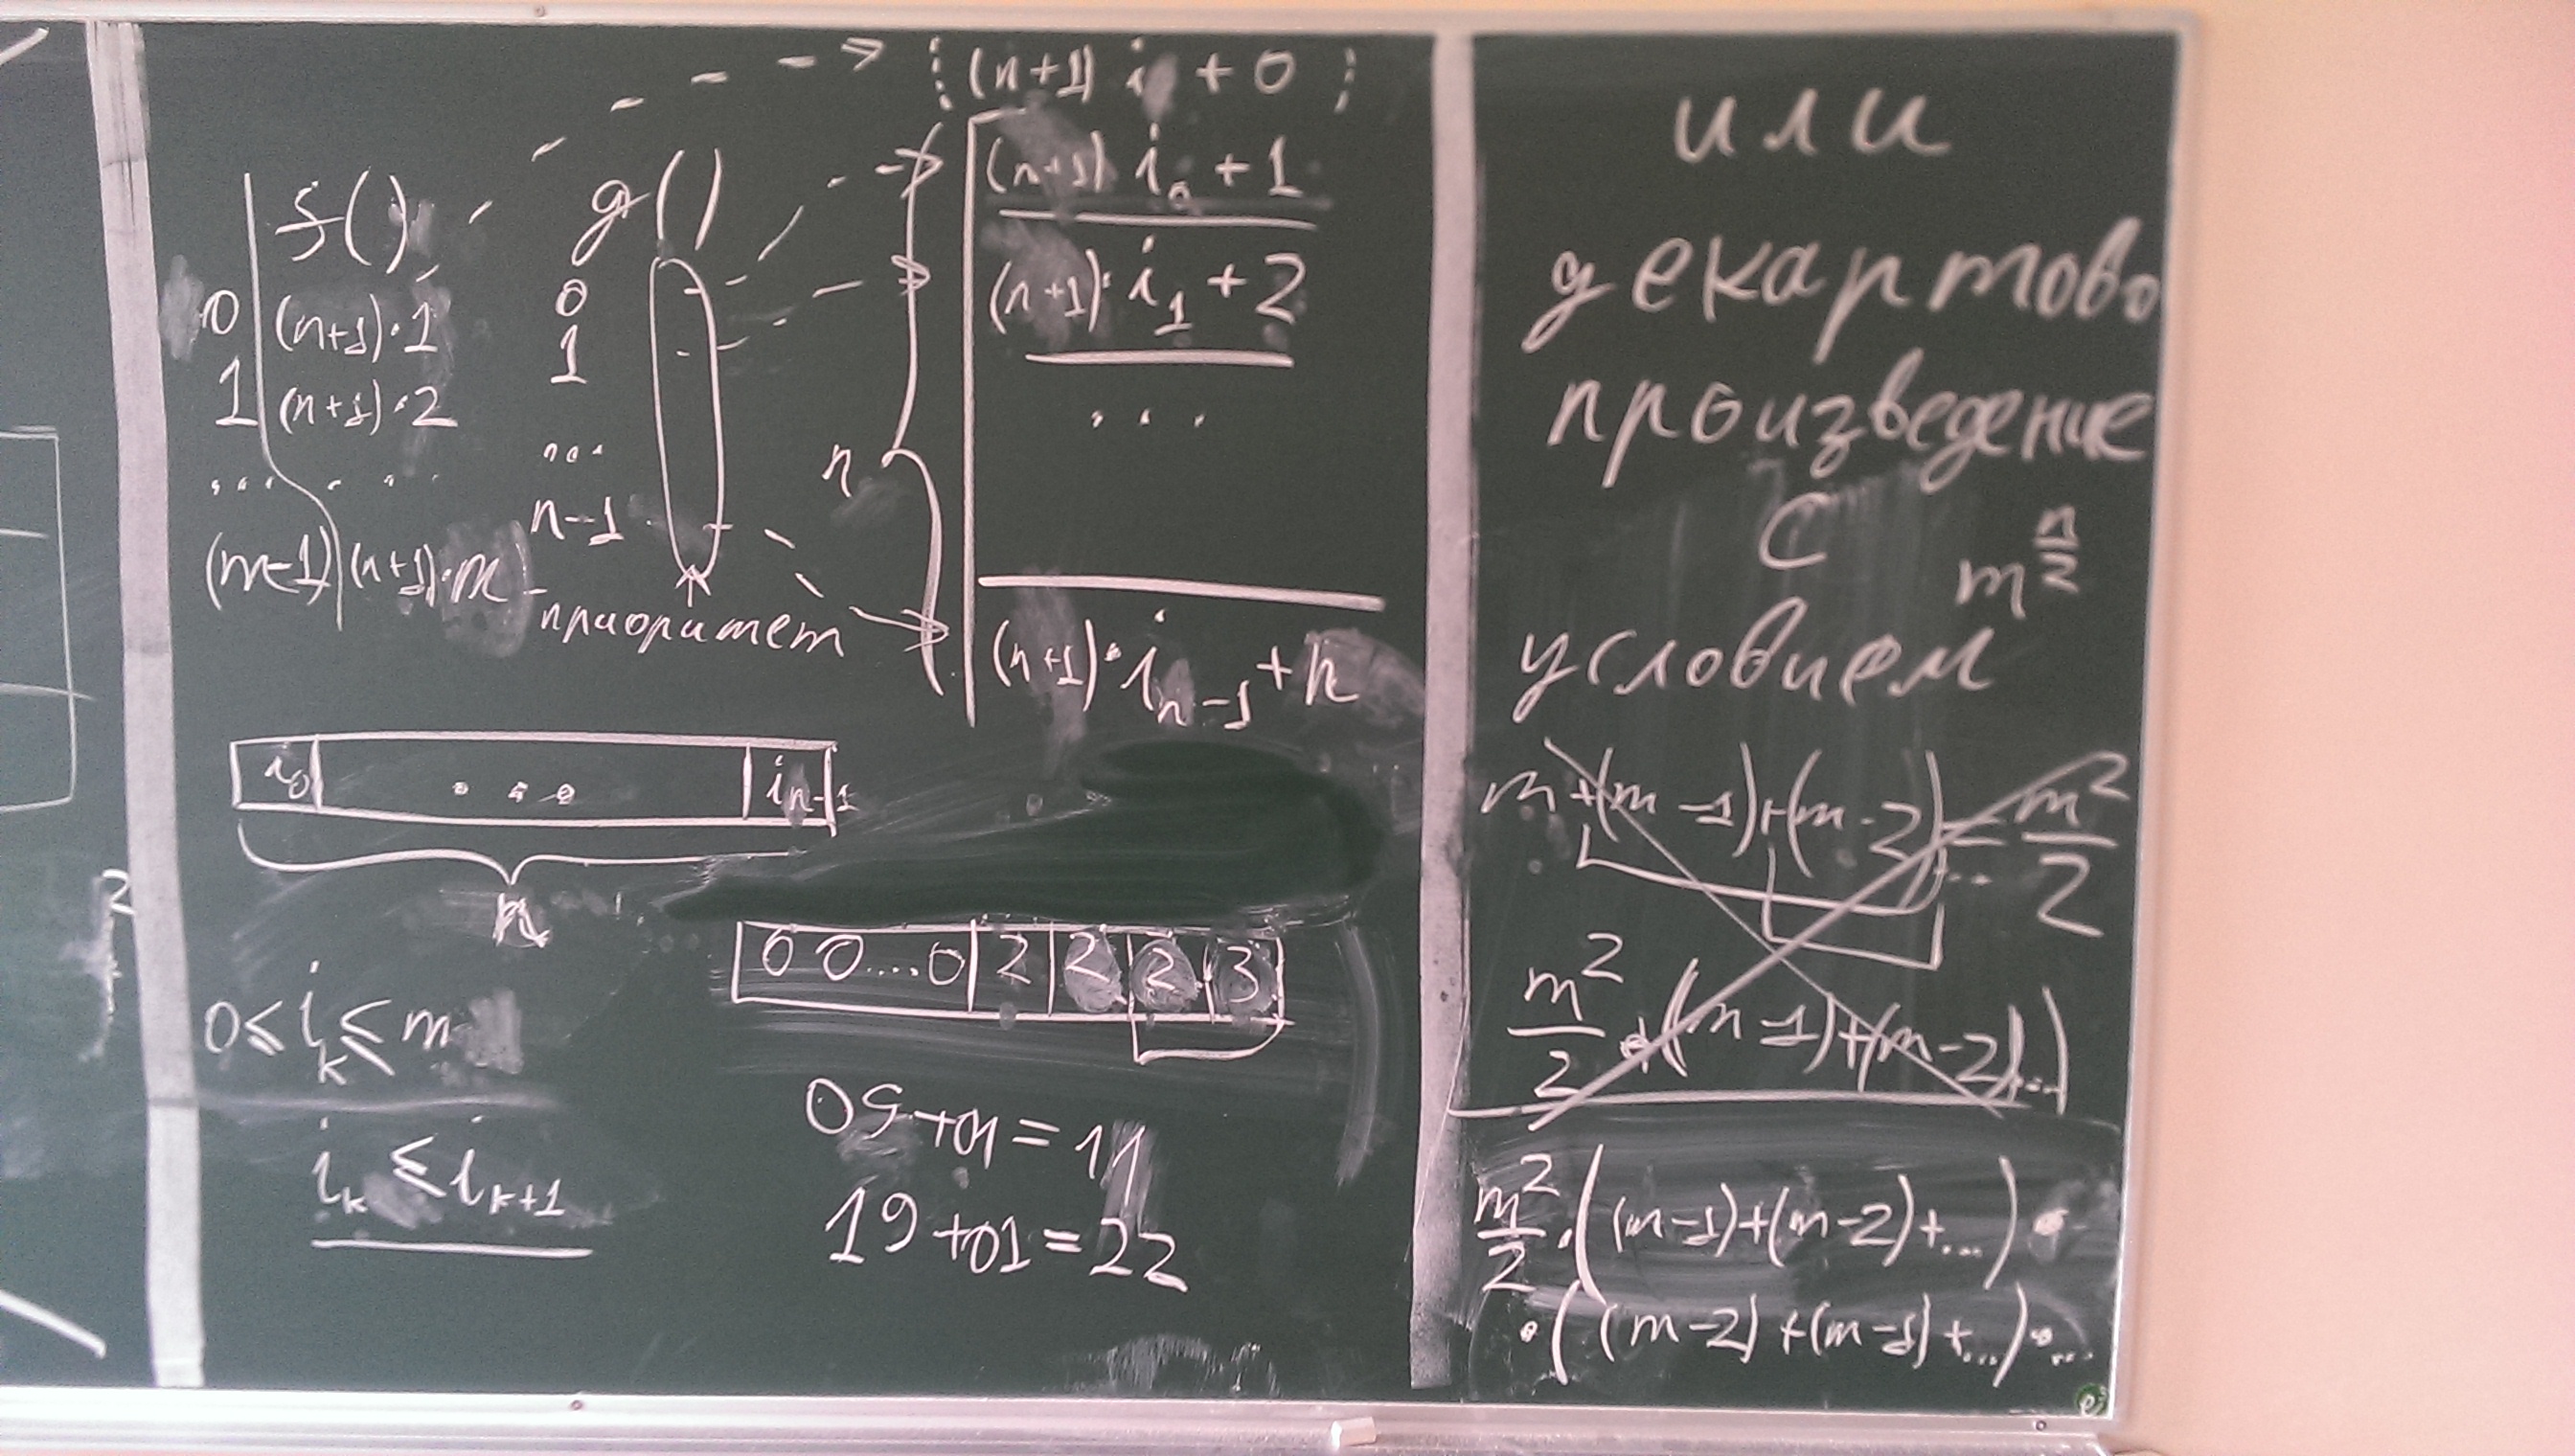 (n+1) i + 0
f()
0 (n+1)·1
1 (n+1)·2
... ...
(m-1) (n+1)·m
g()
0
1
...
n-1
приоритет
n
(n+1) i₀ + 1
(n+1)· i₁ + 2
...
(n+1)· iₙ₋₁ + n
i₀ ... iₙ₋₁
n
0 ≤ iₖ ≤ m
iₖ ≤ iₖ₊₁
0 0 .... 0 2 2 2 3
09+01=11
19+01=22
или
декартово
произведение
с
m^(n/2)
условием
m+(m-1)+(m-2)... = m²/2
m²/2 · ((m-1)+(m-2)...)
m²/2 · ((m-1)+(m-2)+...) ·
· ((m-2)+(m-1)+...)·...